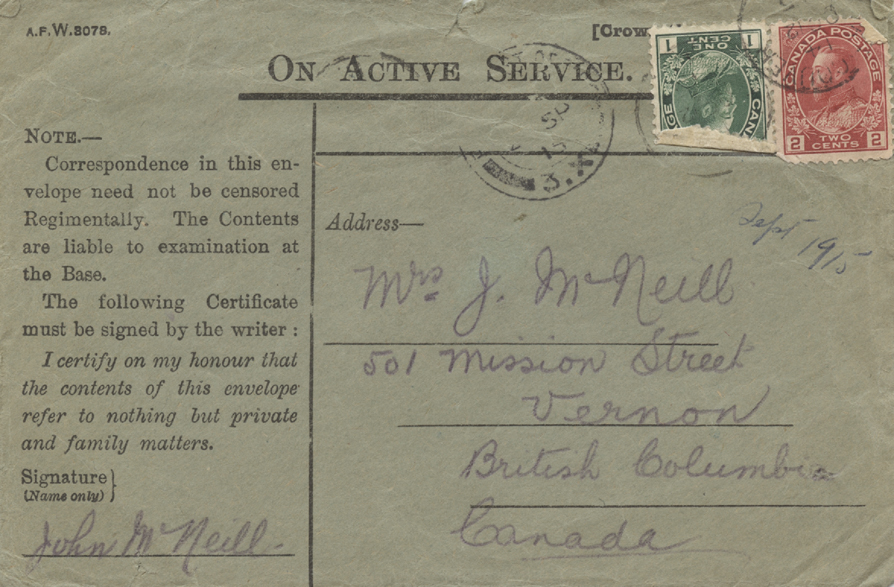 A.F.W.3078.
[Crow
ON ACTIVE SERVICE.
NOTE.—
Correspondence in this en-
velope need not be censored
Regimentally. The Contents
are liable to examination at
the Base.
The following Certificate
must be signed by the writer :
I certify on my honour that
the contents of this envelope
refer to nothing but private
and family matters.
Signature}
(Name only)
John McNeill
1 ONE CENT 1
CANADA POSTAGE
2 TWO CENTS 2
SP
15
3.X
Address—
Sept 1915
Mrs J. McNeill
501 Mission Street
Vernon
British Columbia
Canada